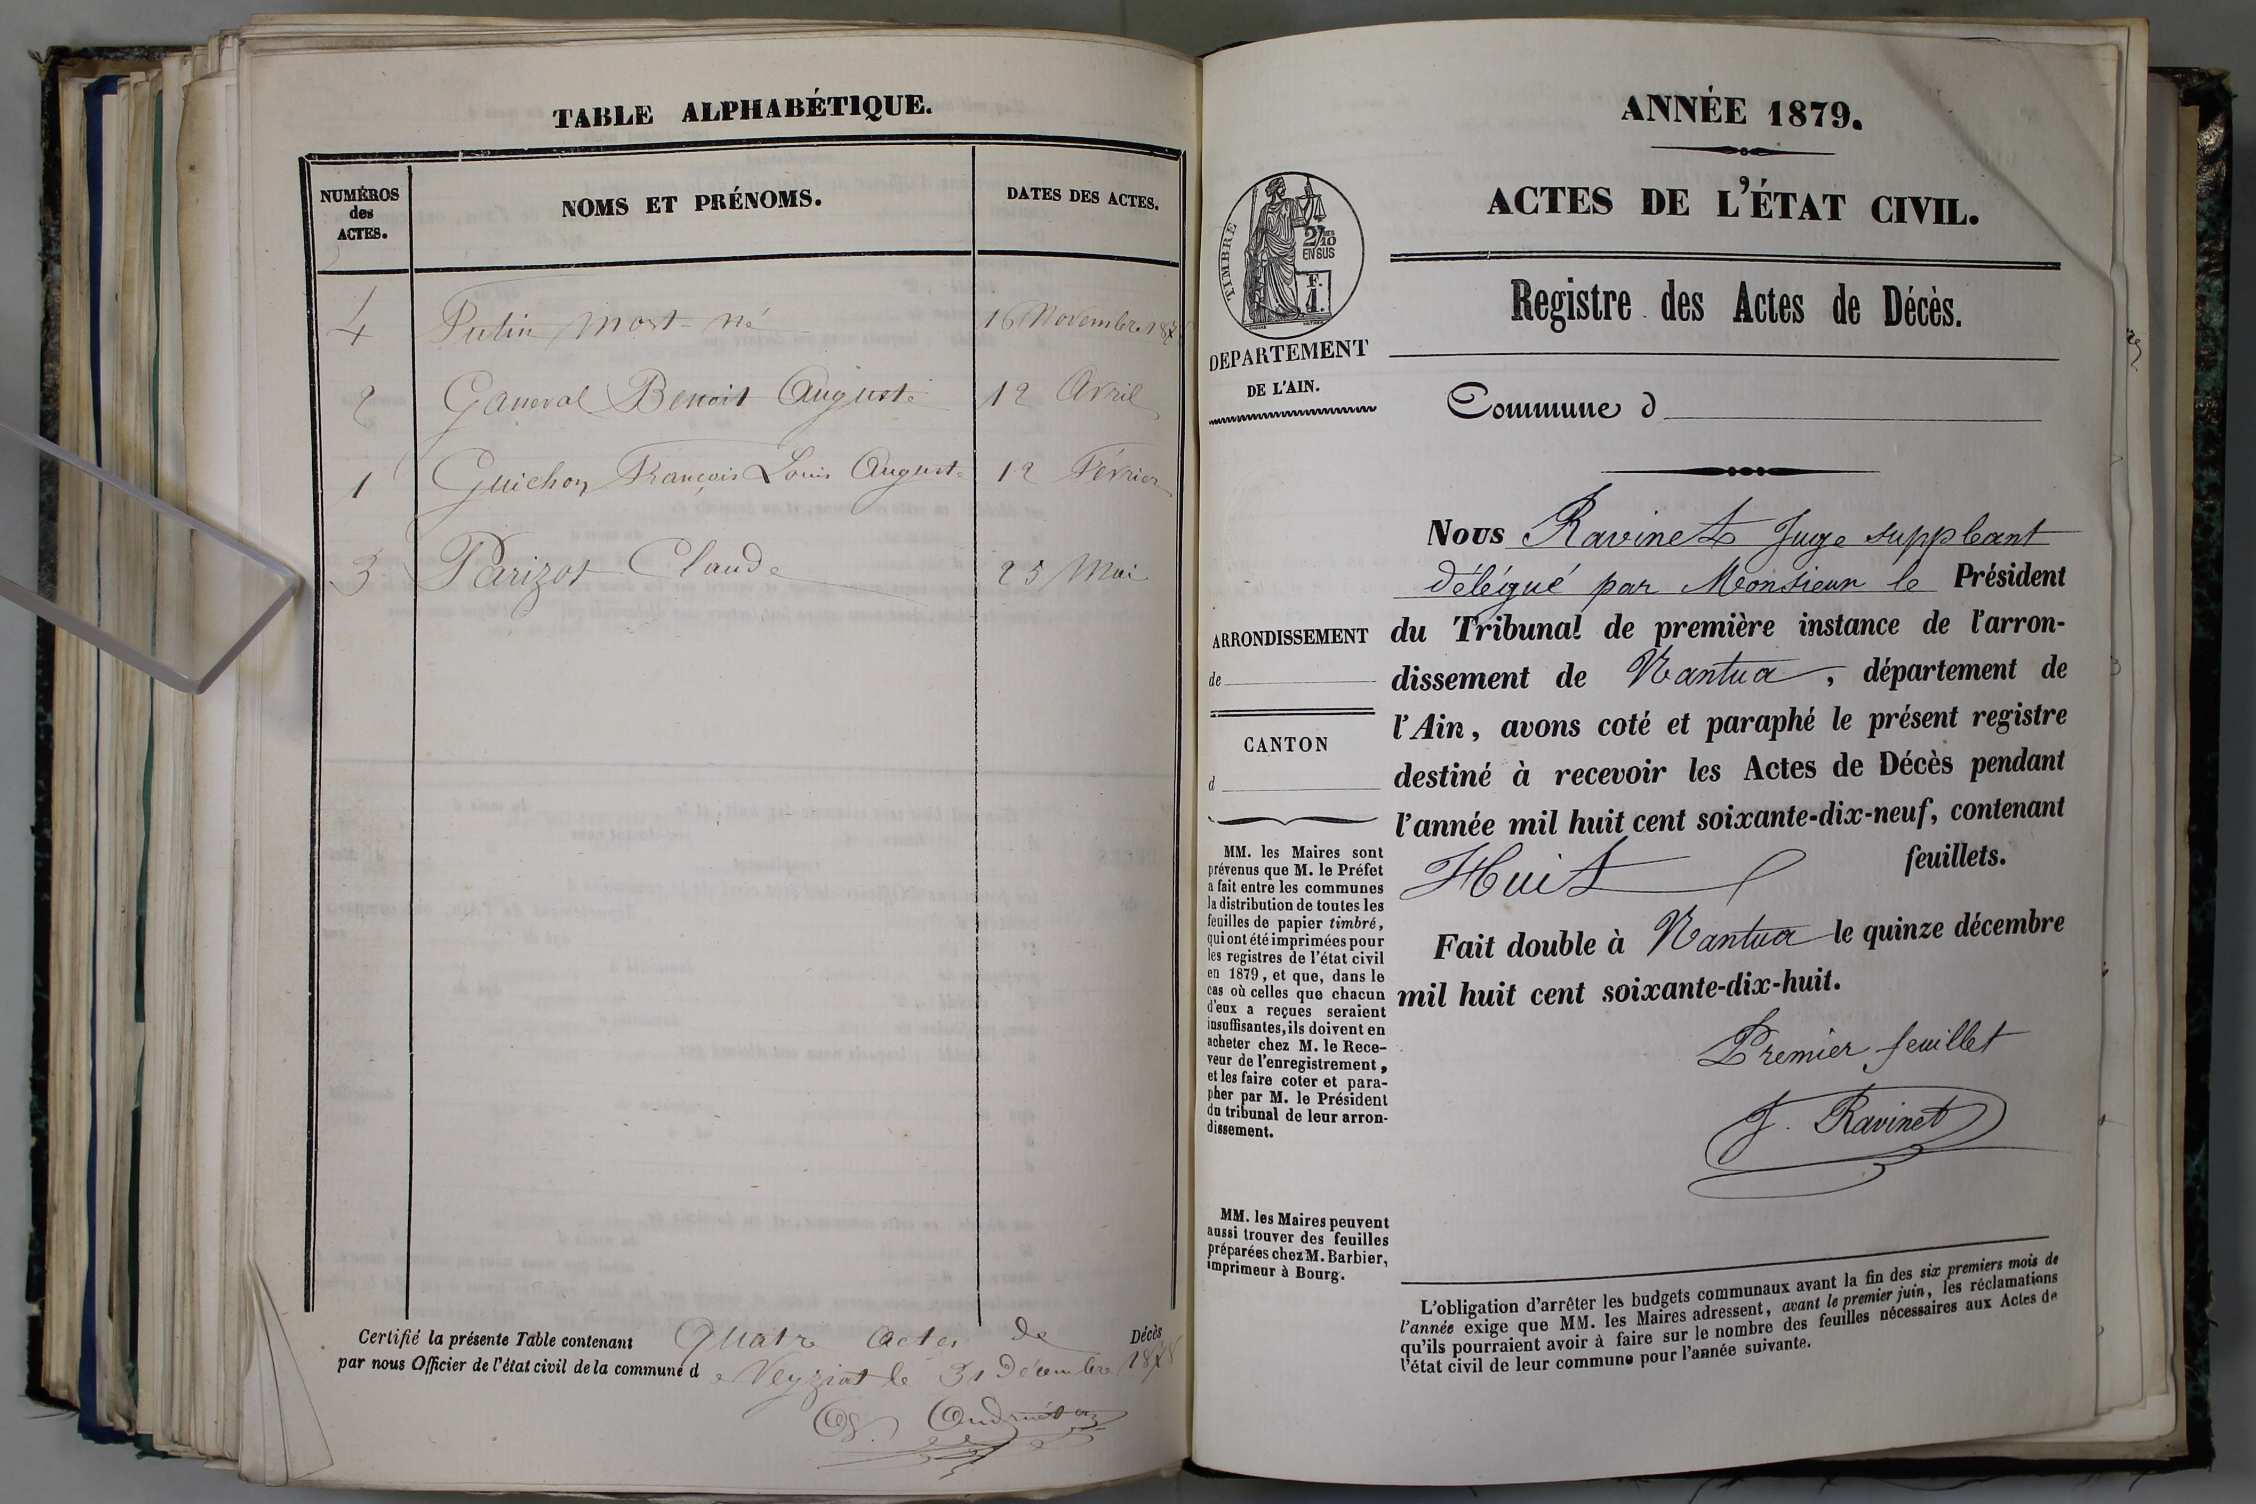 TABLE ALPHABÉTIQUE.
NUMÉROS
des
ACTES.
NOMS ET PRÉNOMS.
DATES DES ACTES.
4 mort-né 16 Novembre 187
2 Ganeval Benoit Auguste 12 Avril
1 Guichon François Louis Auguste 12 Février
3 Parizot Claude 25 Mai
Certifié la présente Table contenant Quatre actes de Décès
par nous Officier de l'état civil de la commune d e Veyziat le 31 Décembre 1878
ANNÉE 1879.
ACTES DE L'ÉTAT CIVIL.
TIMBRE
2/10
EN SUS
F.
1.
DEPARTEMENT
DE L'AIN.
Registre des Actes de Décès.
Commune d
ARRONDISSEMENT
de
CANTON
d
MM. les Maires sont
prévenus que M. le Préfet
a fait entre les communes
la distribution de toutes les
feuilles de papier timbré,
qui ont été imprimées pour
les registres de l'état civil
en 1879, et que, dans le
cas où celles que chacun
d'eux a reçues seraient
insuffisantes, ils doivent en
acheter chez M. le Rece-
veur de l'enregistrement,
et les faire coter et para-
pher par M. le Président
du tribunal de leur arron-
dissement.
MM. les Maires peuvent
aussi trouver des feuilles
préparées chez M. Barbier,
imprimeur à Bourg.
Nous Ravinet Juge suppleant
délégué par Monsieur le Président
du Tribunal de première instance de l'arron-
dissement de Nantua, département de
l'Ain, avons coté et paraphé le présent registre
destiné à recevoir les Actes de Décès pendant
l'année mil huit cent soixante-dix-neuf, contenant
Huit feuillets.
Fait double à Nantua le quinze décembre
mil huit cent soixante-dix-huit.
Premier feuillet
J. Ravinet
L'obligation d'arrêter les budgets communaux avant la fin des six premiers mois de
l'année exige que MM. les Maires adressent, avant le premier juin, les réclamations
qu'ils pourraient avoir à faire sur le nombre des feuilles nécessaires aux Actes de
l'état civil de leur commune pour l'année suivante.